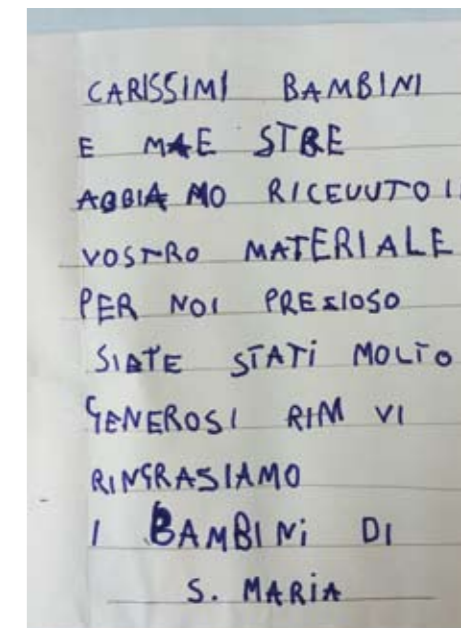 CARISSIMI BAMBINI
E MAE STRE
ABBIA MO RICEVUTO IL
VOSTRO MATERIALE
PER NOI PREZIOSO
SIATE STATI MOLTO
GENEROSI RIM VI
RINGRASIAMO
I BAMBINI DI
S. MARIA